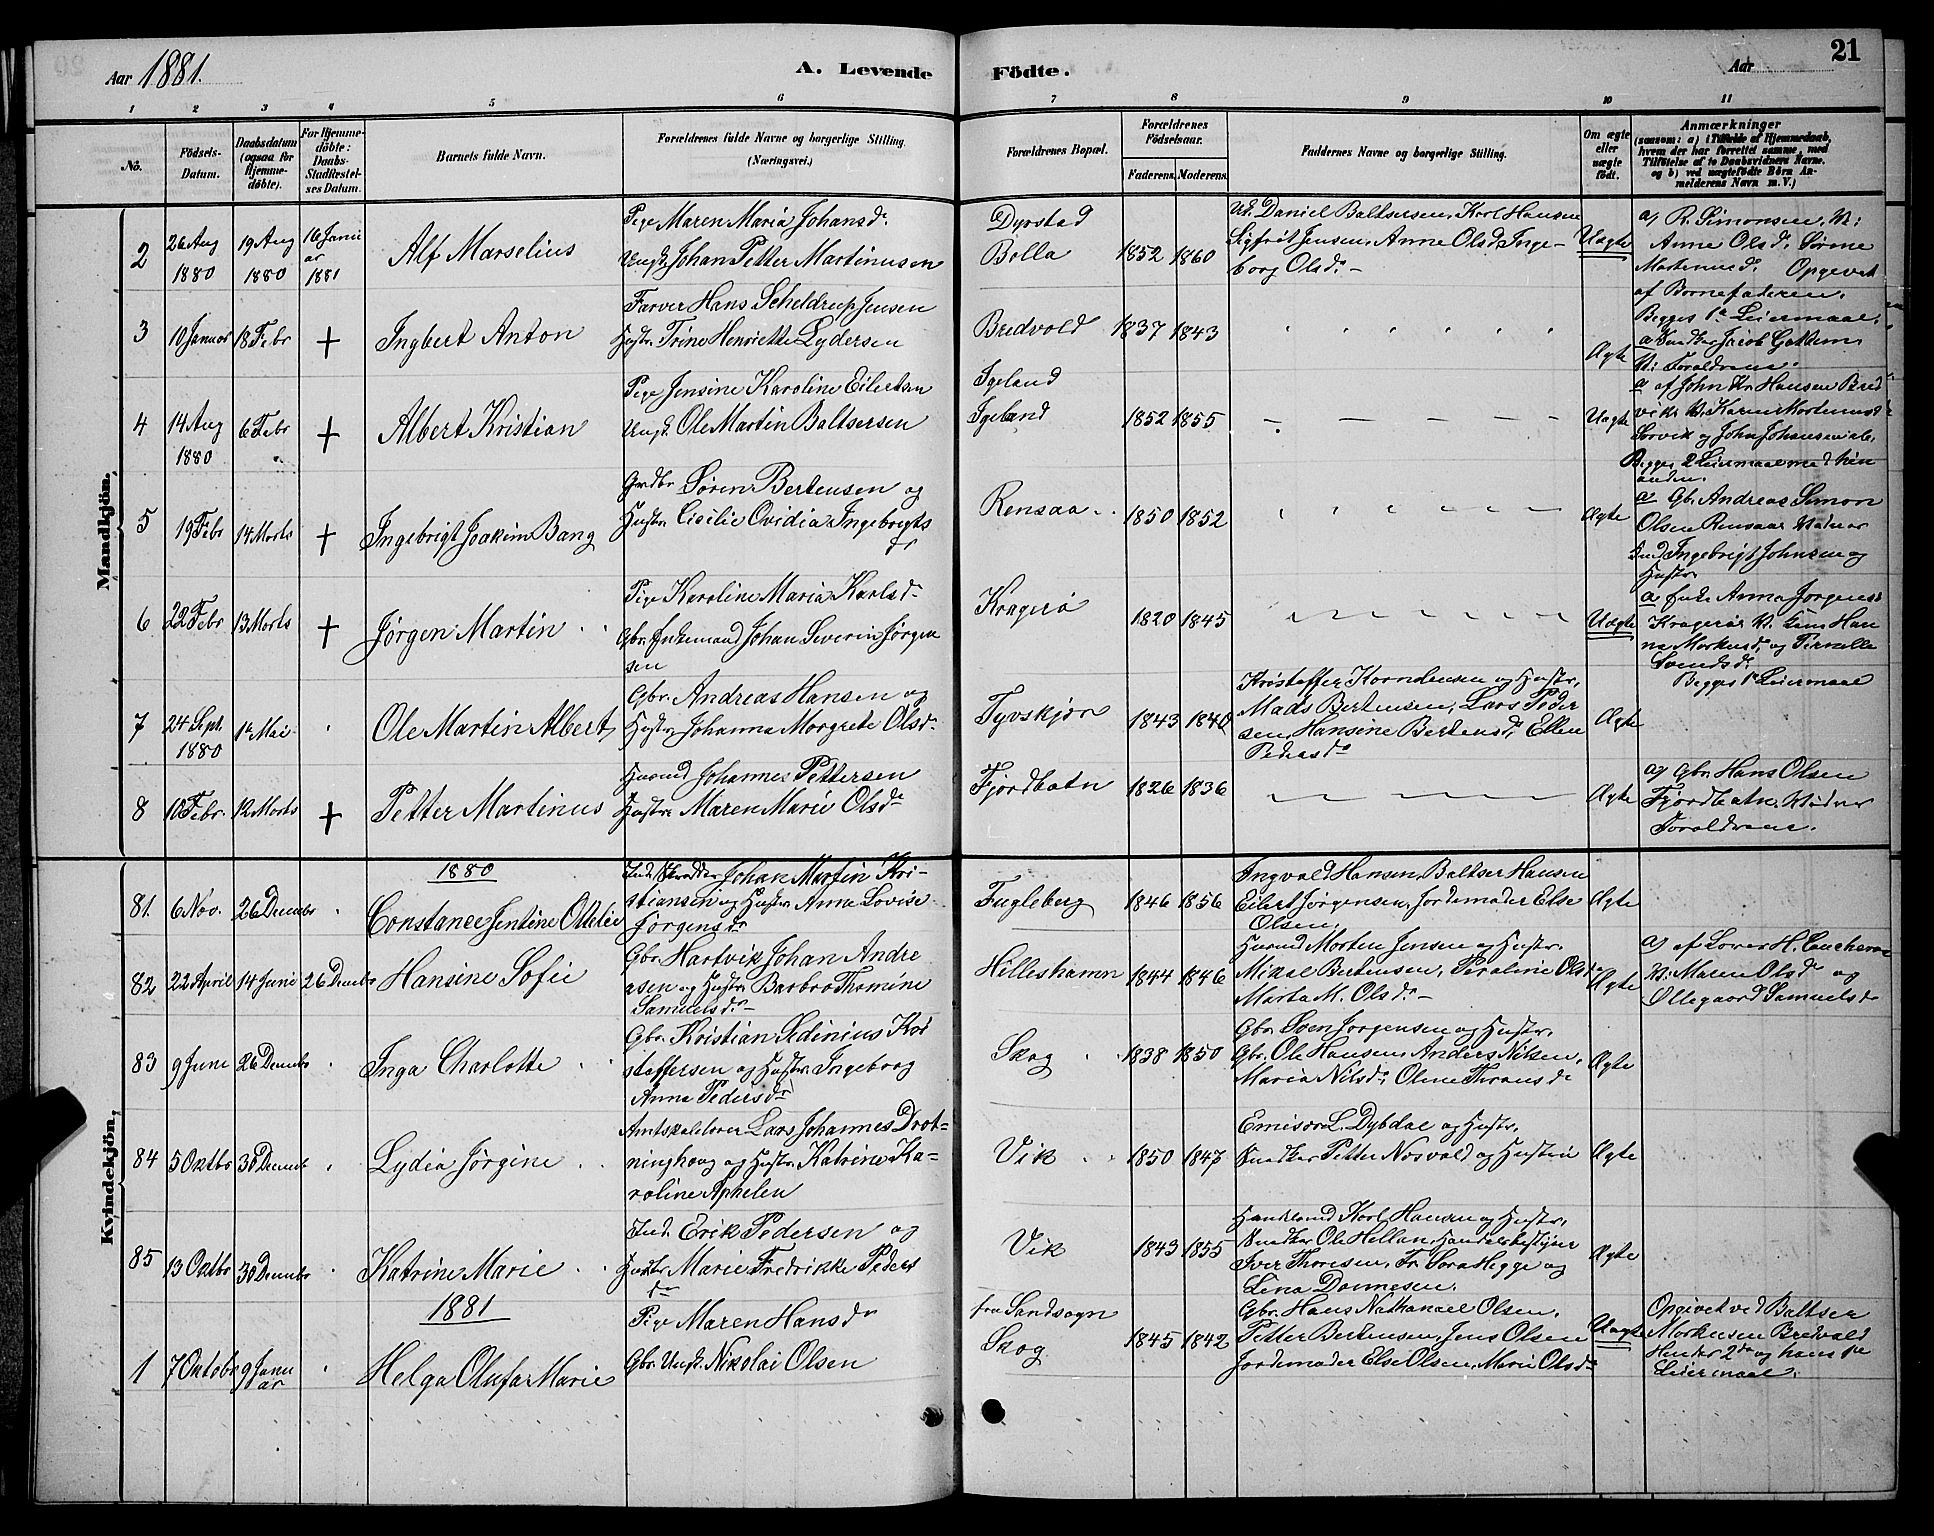 Aar 1881.
A. Levende Födte.
Aar
21
1 2 3 4 5 6 7 8 9 10 11
No.
Födsels-Datum.
Daabsdatum (ogsaa for Hjemme-döbte).
For Hjemme-döbte: Daabs-Stadfæstelses Datum.
Barnets fulde Navn.
Forældrenes fulde Navne og borgerlige Stilling. (Næringsvei.)
Forældrenes Bopæl.
Forældrenes Födselsaar.
Faderens. Moderens.
Faddernes Navne og borgerlige Stilling.
Om ægte eller uægte födt.
Anmærkninger
(saasom: a) i Tilfælde af Hjemmedaab, hvem der har forrettet samme, med Tilföielse af to Daabsvidners Navne, og b) ved uægtefödte Börn Anmelderens Navn m. V.)
Mandkjön.
2
26 Aug 1880
19 Aug 1880
16 Janu ar 1881
Alf Marselius
Pige Maren Maria Johansdr
Ungk. Johan Petter Martinusen
Dyrstad
Bolla
1852 1860
Uk. Daniel Baltsersen, Karl Hansen
Sigfrit Jensen, Anne Olsd. Inge-
borg Olsdr
Uægte
a) R. Simonsen, V:
Anne Olsdr
Opgevet
af Barnefaderen.
Begges 1e Leiermaal.
3
10 Januar
18 Febr
+
Ingbert Anton
Farver Hans Scheldrup Jensen
Hustr. Trine Henriette Lydersen
Bredvold
1837 1843
Ægte
a Jacob
V: Foraldrene.
4
14 Aug 1880
6 Febr
+
Albert Kristian
Pige Jensine Karoline Eilertsen
Ungk. Ole Martin Baltsersen
Igeland
Igeland
1852 1855
Uægte
a af John Kr Hansen Bred
vik. V. Karen Mortensd
Sørvik og John Johansen
Begges 2 Leiermaal med hin
anden.
5
19 Febr
14 Marts
+
Ingebrigt Joakim Bang
Grdbr Søren Bertensen og
Hustr. Cicilie Ovidia Ingebrigts
dr
Rensaa
1850 1852
Ægte
a Gbr. Andreas Simon
Olsen Rensaa, Vidner
Ind. Ingebrigt Johnsen og
Hustr.
6
22 Febr
13 Marts
+
Jørgen Martin
Pige Karoline Maria Karlsdr
Gbr. Enkemand Johan Severin Jørgen
sen
Kragerø
1820 1845
Uægte
a Enke Anna Jørgens
Kragerø, V. Han
na Markusd. og Pernelle
Svendsdr
Begges 1e Leiermaal
7
24 Sept. 1880
1e Mai
Ole Martin Albert
Gbr. Andreas Hansen og
Hustr. Johanna Margrete Olsdr
Tyvskjær
1843 1840
Kristoffer Korneliusen og Hustr,
Mads Bertensen, Lars Peder
sen, Hansine Bertensdr, Ellen
Pedersdr
Ægte
8
10 Febr.
12 Marts
+
Petter Martinus
Husmd Johannes Pettersen
Hustr. Maren Marie Olsdr
Fjordbotn
1826 1836
Ægte
a) Gbr. Hans Olsen
Fjordbotn. Vidner
Foraldrene.
Kvindekjön.
1880
81.
6 Nov.
26 Decmbr
Constance Jentine Ottelie
Ind. Skrædder Johan Martin Kri-
stiansen og Hustr. Anna Lovise
Jørgensdr
Fugleberg
1846 1856
Ingvald Hansen, Baltser Hansen
Eilert Jørgensen, Jordemoder Else
Olsen
Ægte
82
22 April
14 Juni
26 Decmbr
Hansine Sofie
Gbr. Hartvik Johan Andre
asen og Hustr. Barbro Thomine
Samuelsdr
Hilleshamn
1844 1846
Husmd Morten Jensen og Hustr.
Mikal Bertensen, Peroline Olsdr
Marta M. Olsdr
Ægte
a) af Lærer H.
V: Maren Olsdr og
Ollegaard Samuelsdr
83
9 June
26 Decmbr
Inga Charlotte
Gbr. Kristian Sedinius Kri
stoffersen og Hustr. Ingeborg
Anna Pedersdr
Skog
1838 1850
Gbr. Sven Jørgensen og Hustr.
Gbr. Ole Hansen, Anders Nilsen,
Maria Nilsdr. Oline Thransdr
Ægte
84
5 Oktbr
30 Decmbr
Lydia Jørgine
Amtskolelærer Lars Johannes Drot-
ninghaug og Hustr. Katrine Ka-
roline Aphelen
Vik
1850 1847
Emisær L. Dybdal og Hustr.
Snedker Petter Nosvold og Hustru
Ægte
85
13 Oktbr
30 Decmbr
Katrine Marie
Ind. Erik Pedersen og
Hustr Marie Fredrikke Peders
dr
Vik
1843 1855
Handlsmd Karl Hansen og Hustr,
Snedker Ole Helland, Handelsbestyrer
Iver Thoresen, Fr. Sara Hegge og
Lina Donnesen.
Ægte
1881
1
7 Oktobr
9 Janu ar
Helga Olufa Marie
Pige Maren Hansdr
Gbr. Ungk. Nikolai Olsen
fra Sandsogn
Skog
1845 1842
Gbr. Hans Nathanael Olsen,
Petter Bertensen, Jens Olsen
Jordemoder Else Olsen, Marie Olsdr
Uægte
Opgivet ved Baltser
Markusen Bredvold
Hendes 2de og hans 1e
Leiermaal.